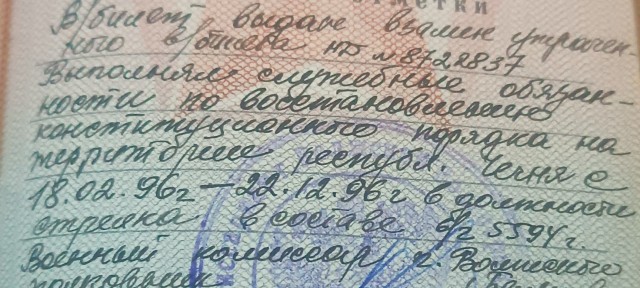 отметки
В/билет выдан взамен утрачен-
ного в/билета НП №8722837
Выполнял служебные обязан-
ности по восстановлению
конституционного порядка на
территории республ. Чечня с
18.02.96г – 22.12.96г в должности
стрелка в составе в/ч 5594 г.
Военный комиссар г.
полковник